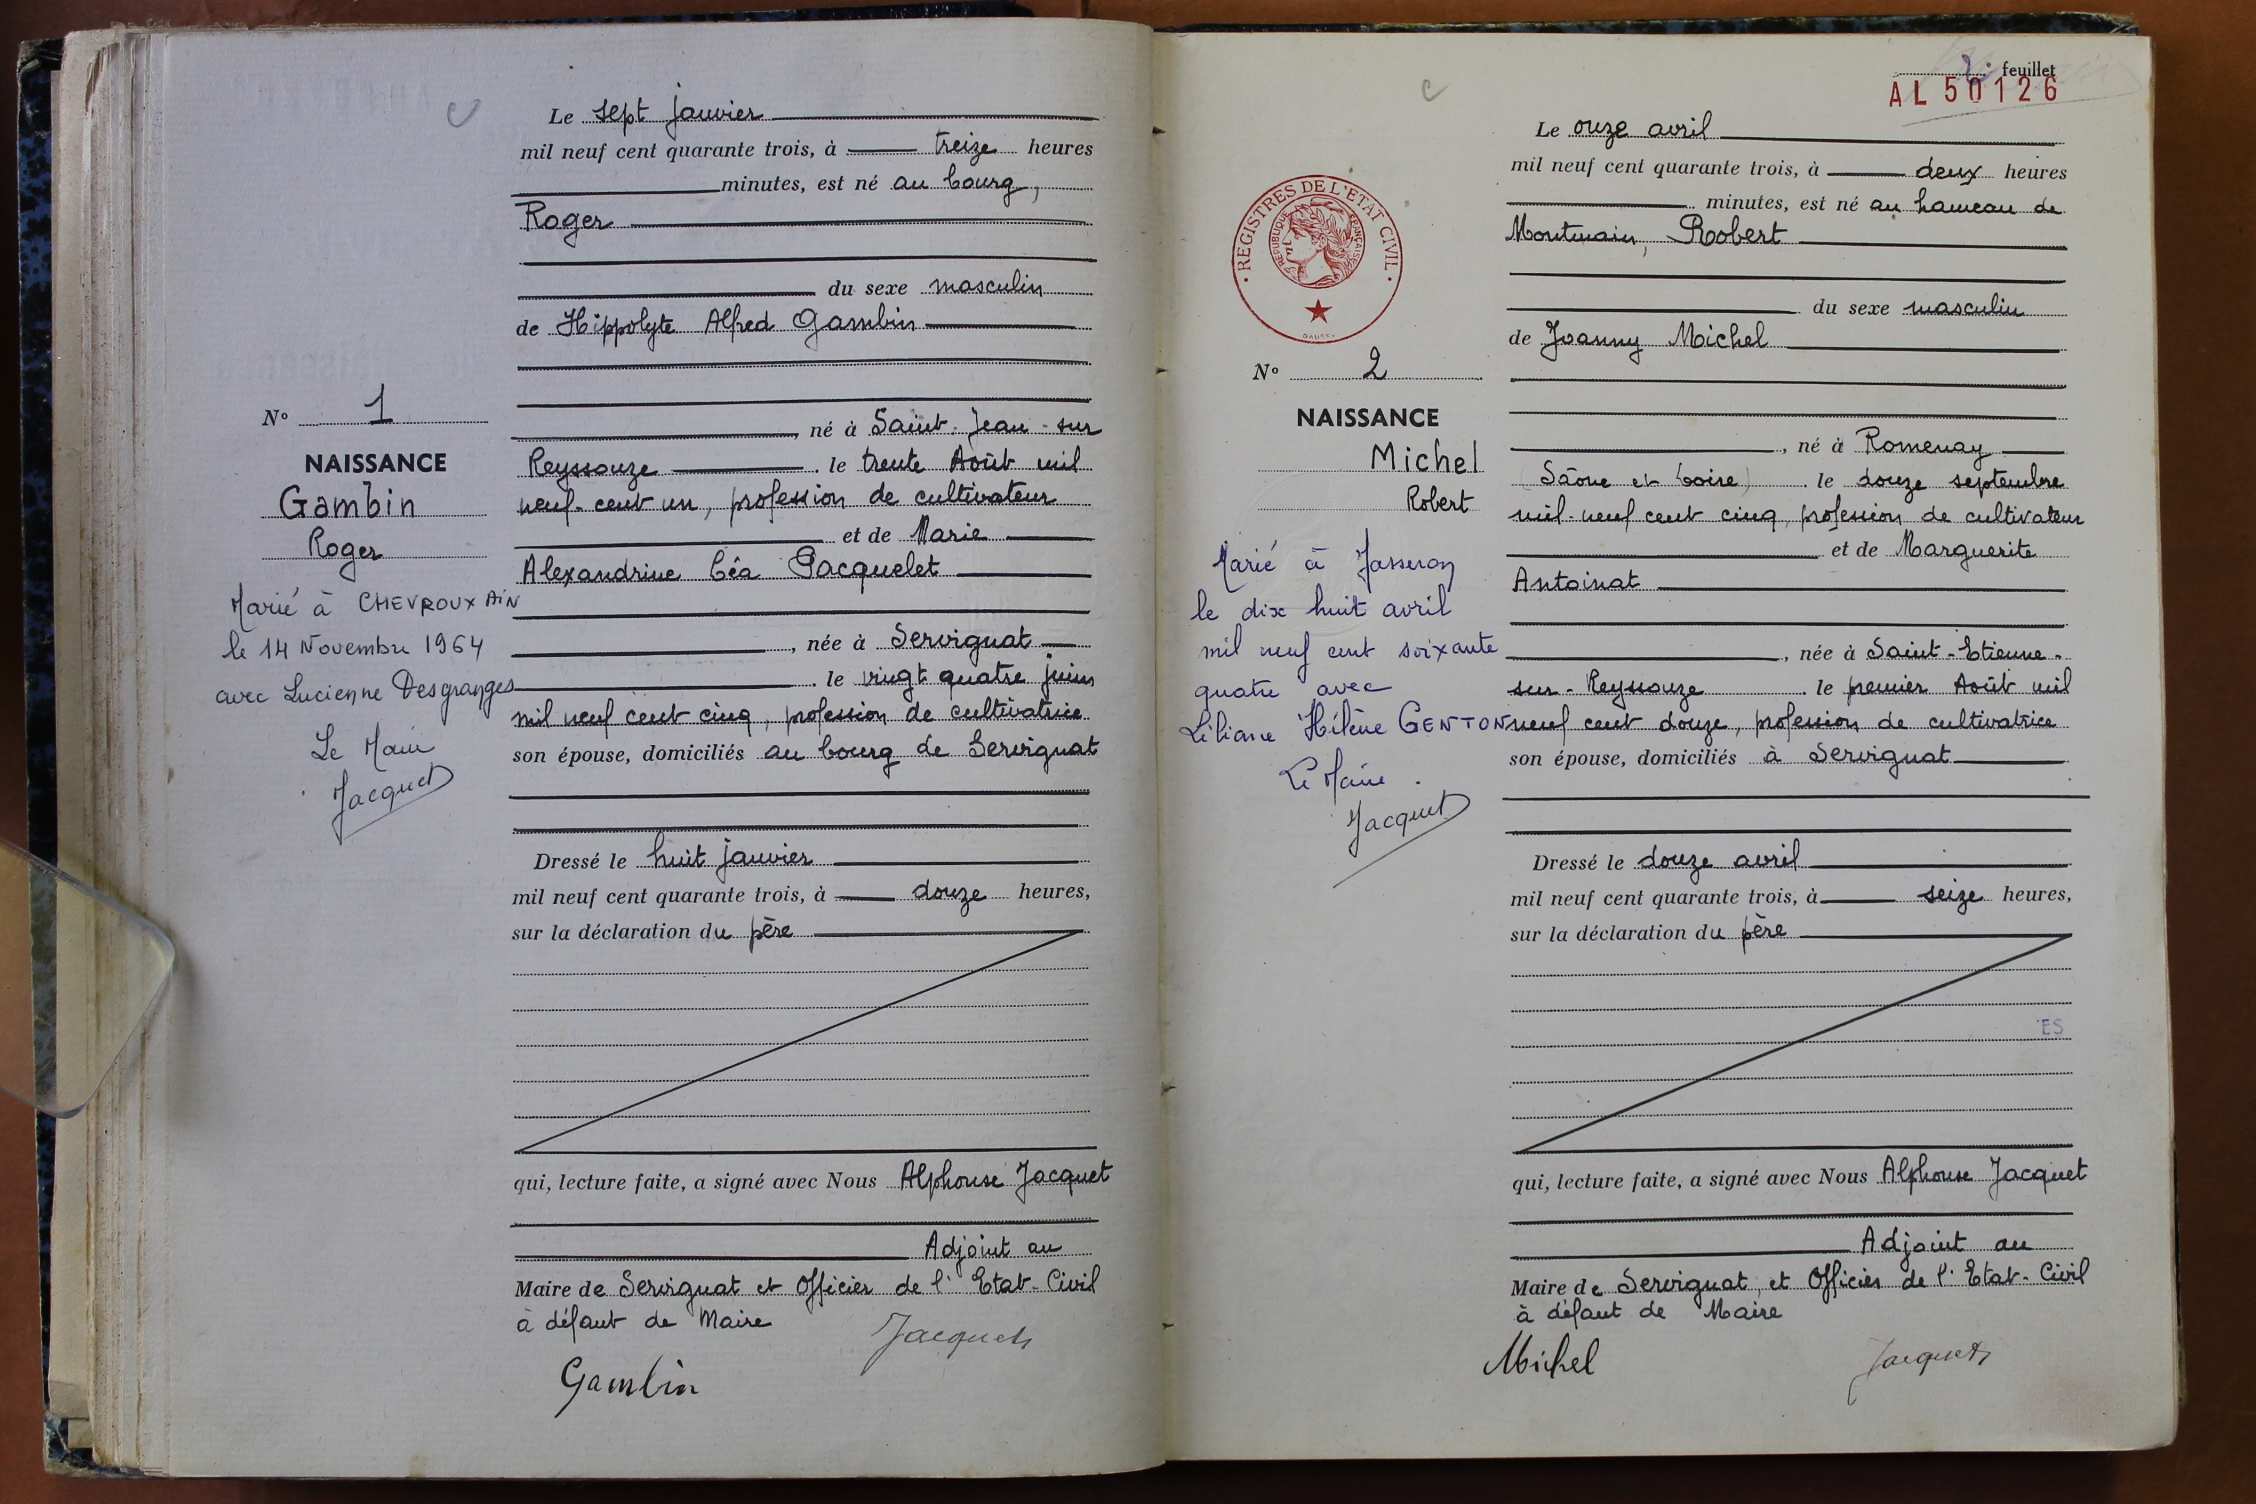 Le sept janvier
mil neuf cent quarante trois, à treize heures
minutes, est né au bourg,
Roger
du sexe masculin
de Hippolyte Alfred Gambin
né à Saint-Jean-sur
Reyssouze le trente Août mil
neuf-cent un, profession de cultivateur
et de Marie
Alexandrine Léa Pacquelet
, née à Servignat
le vingt quatre juin
mil neuf cent cinq, profession de cultivatrice
son épouse, domiciliés au bourg de Servignat
Dressé le huit janvier
mil neuf cent quarante trois, à douze heures,
sur la déclaration du père
qui, lecture faite, a signé avec Nous Alphonse Jacquet
Adjoint au
Maire de Servignat et Officier de l'Etat-Civil
à défaut de Maire
Jacquet
Gambin
N° 1
NAISSANCE
Gambin
Roger
Marié à CHEVROUX AIN
le 14 Novembre 1964
avec Lucienne Desgranges
Le Maire
Jacquet
feuillet
AL 50126
Le onze avril
mil neuf cent quarante trois, à deux heures
minutes, est né au hameau de
Montmain, Robert
du sexe masculin
de Joanny Michel
, né à Romenay
(Saône et Loire) le douze septembre
mil-neuf cent cinq, profession de cultivateur
et de Marguerite
Antoinat
, née à Saint-Etienne-
sur-Reyssouze le premier Août mil
neuf cent douze, profession de cultivatrice
son épouse, domiciliés à Servignat
Dressé le douze avril
mil neuf cent quarante trois, à seize heures,
sur la déclaration du père
ES
qui, lecture faite, a signé avec Nous Alphonse Jacquet
Adjoint au
Maire de Servignat, et Officier de l'Etat-Civil
à défaut de Maire
Michel
Jacquet
REGISTRES DE L'ETAT CIVIL
REPUBLIQUE FRANÇAISE
N° 2
NAISSANCE
Michel
Robert
Marié à Jasseron
le dix huit avril
mil neuf cent soixante
quatre avec
Liliane Hélène GENTON
Le Maire
Jacquet